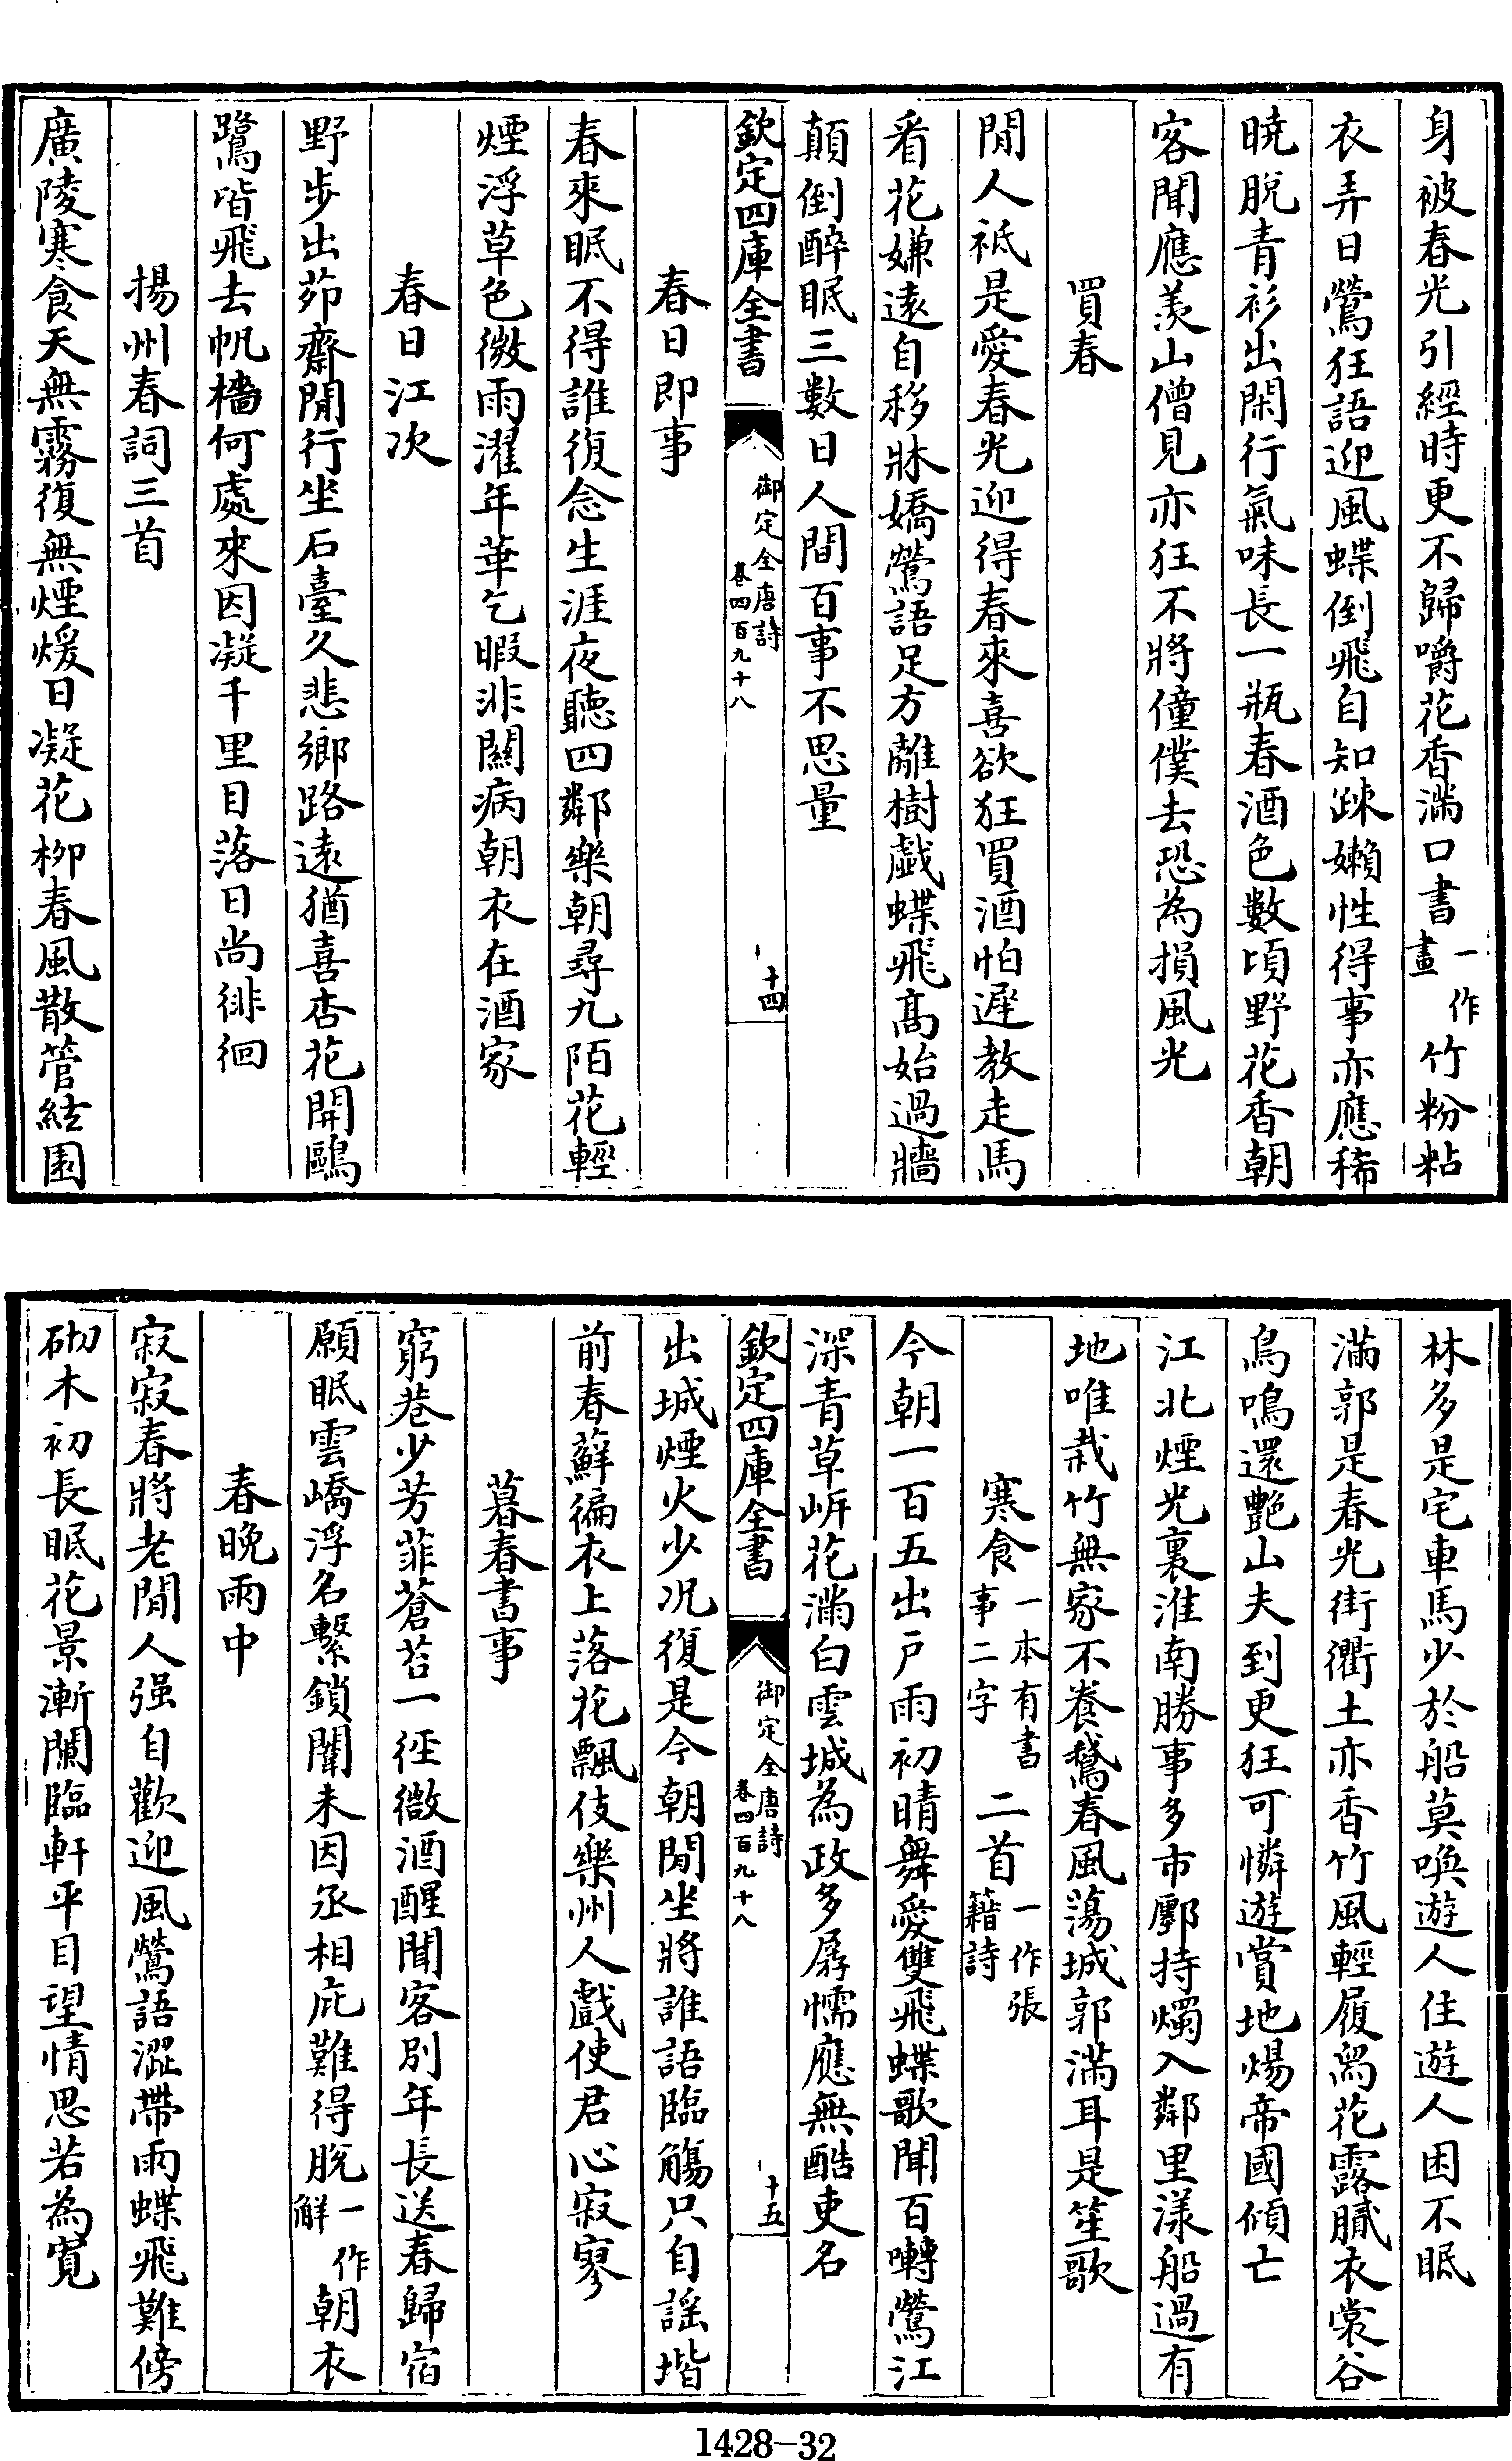 身被春光引經時更不歸嚼花香滿口書一作畫竹粉粘
衣弄日鶯狂語迎風蝶倒飛自知疎嬾性得事亦應稀
曉脫青衫出閑行氣味長一瓶春酒色數頃野花香朝
客聞應羡山僧見亦狂不將僮僕去恐為損風光
買春
閒人祗是愛春光迎得春來喜欲狂買酒怕遲教走馬
看花嫌遠自移牀嬌鶯語足方離樹戲蝶飛高始過牆
顛倒醉眠三數日人間百事不思量
欽定四庫全書
御定全唐詩
卷四百九十八
十四
春日即事
春來眠不得誰復念生涯夜聽四鄰樂朝尋九陌花輕
煙浮草色微雨濯年華乞暇非關病朝衣在酒家
春日江次
野步出茆齋閒行坐石臺久悲鄉路遠猶喜杏花開鷗
鷺皆飛去帆檣何處來因凝千里目落日尚徘徊
揚州春詞三首
廣陵寒食天無霧復無煙煖日凝花柳春風散管絃園
林多是宅車馬少於船莫喚遊人住遊人困不眠
滿郭是春光街衢土亦香竹風輕履舄花露膩衣裳谷
鳥鳴還艷山夫到更狂可憐遊賞地煬帝國傾亡
江北煙光裏淮南勝事多市鄽持燭入鄰里漾船過有
地唯栽竹無家不養鵞春風蕩城郭滿耳是笙歌
寒食一本有書事二字二首一作張籍詩
今朝一百五出戶雨初晴舞愛雙飛蝶歌聞百囀鶯江
深青草岍花滿白雲城為政多孱懦應無酷吏名
欽定四庫全書
御定全唐詩
卷四百九十八
十五
出城煙火少况復是今朝閒坐將誰語臨觴只自謡堦
前春蘚徧衣上落花飄伎樂州人戲使君心寂寥
暮春書事
窮巷少芳菲蒼苔一徑微酒醒聞客別年長送春歸宿
願眠雲嶠浮名繫鎖闈未因丞相庇難得脫一作解朝衣
春晚雨中
寂寂春將老閒人强自歡迎風鶯語澀帶雨蝶飛難傍
砌木初長眠花景漸闌臨軒平目望情思若為寬
1428-32